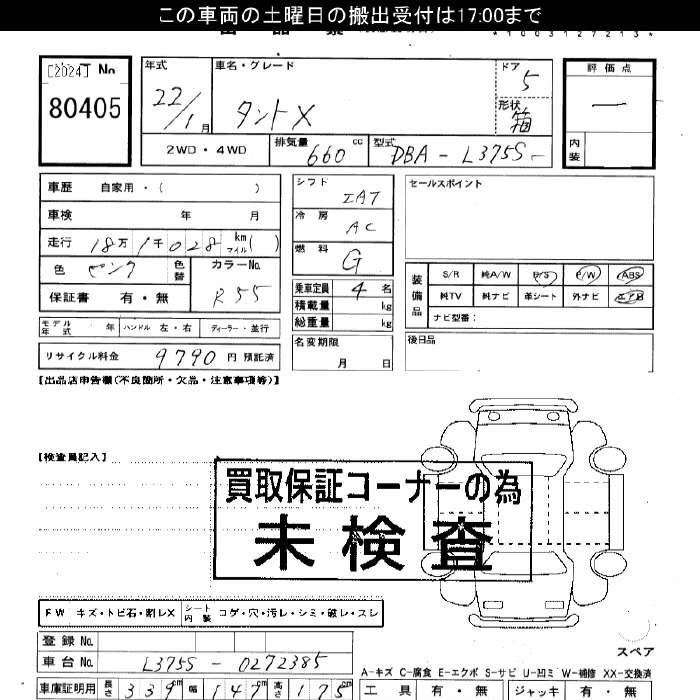 この車両の土曜日の搬出受付は17:00まで
*1003127213*
[2024] No
80405
年式 22/1月
車名・グレード タントX
ドア 5
形状 箱
評価点 一
内装
2WD・4WD
排気量 660 cc
型式 DBA-L375S-
車歴 自家用・( )
車検 年 月
走行 18万1千028 km マイル( )
色 ピンク 色替
カラーNo. R55
保証書 有・無
モデル年式 年 ハンドル 左・右 ディーラー・並行
リサイクル料金 9790 円 預託済
シフト IAT
冷房 AC
燃料 G
乗車定員 4 名
積載量 kg
総重量 kg
名変期限 月 日
セールスポイント
装備品
S/R 純A/W P/S P/W ABS
純TV 純ナビ 革シート 外ナビ エアB
ナビ型番:
後日品
【出品店申告欄(不良箇所・欠品・注意事項等)】
【検査員記入】
買取保証コーナーの為
未検査
FW キズ・トビ石・割レX シート内装 コゲ・穴・汚レ・シミ・破レ・スレ
登録No.
車台No. L375S-0272385
車庫証明用 長さ 339cm 幅 147cm 高さ 175cm
スペア
A-キズ C-腐食 E-エクボ S-サビ U-凹ミ W-補修 XX-交換済
工具 有・無 ジャッキ 有・無